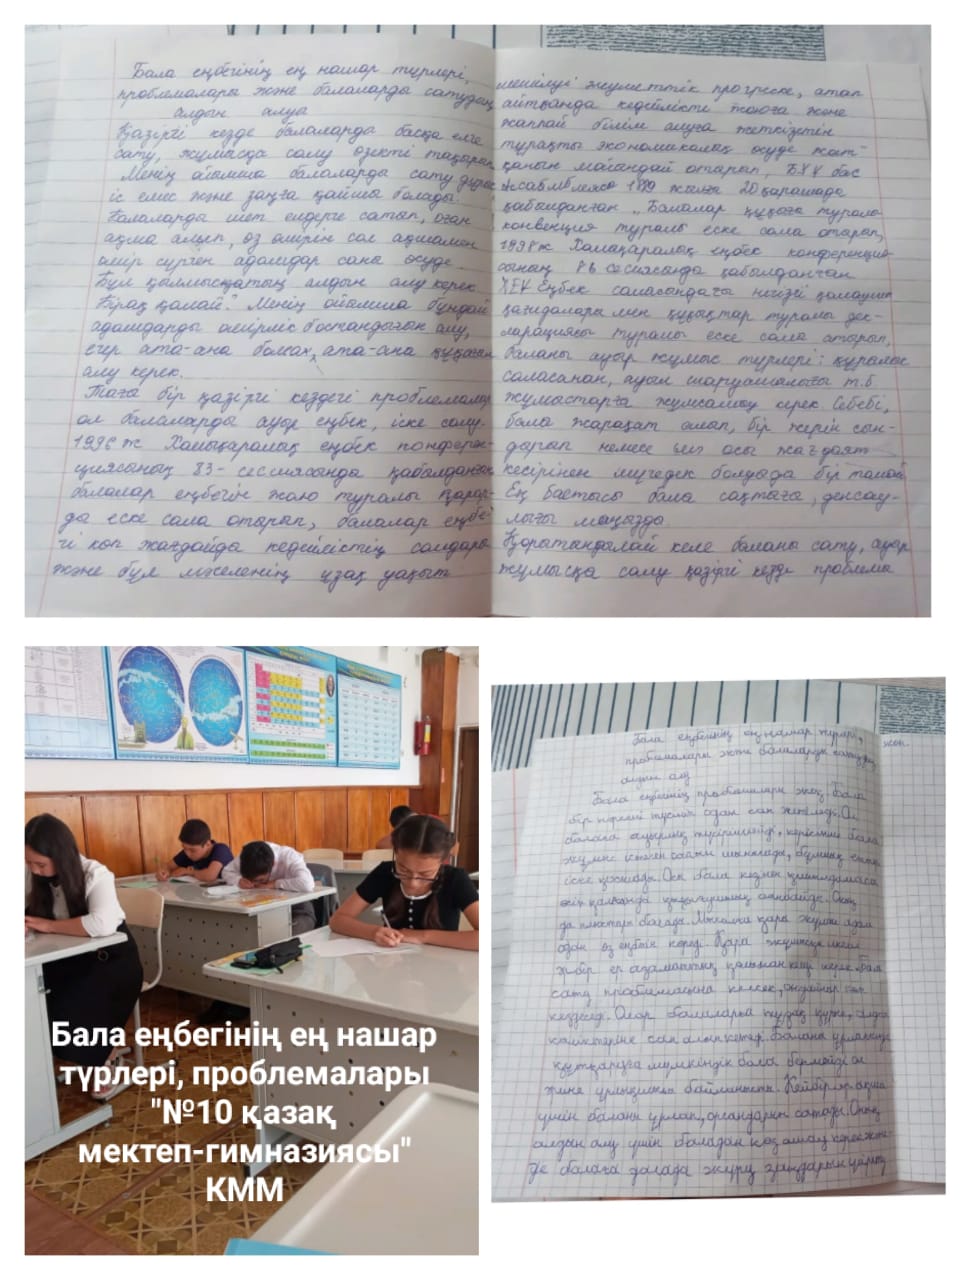 Бала еңбегінің ең нашар түрлері,
проблемалары және балаларды сатудың
алдын алуы
Қазіргі кезде балаларды басқа елге
сату, жұмысқа салу өзекті тақырып
Менің ойымша балаларды сату дұрыс
іс емес және заңға қайшы болады.
Балаларды шет елдерге сатып, оған
ақша алып, өз өмірін сол ақшамен
өмір сүрген адамдар саны өсуде.
Бұл қылмыстың алдын алу керек
Бірақ қалай? Менің ойымша бұндай
адамдарды өмірлік бостандығын алу,
егер ата-ана болса, ата-ана құқығын
алу керек.
Тағы бір қазіргі кездегі проблемалар
ол балаларды ауыр еңбек, іске салу.
1996 ж Халықаралық еңбек конферен-
циясының 83-сессиясында қабылданған
балалар еңбегін жою туралы қарар-
ды еске сала отырып, балалар еңбе-
гі көп жағдайда кедейліктің салдары
және бұл мәселенің ұзақ уақыт
әлеуметтік прогреске, атап
айтқанда кедейлікті жоюға және
жаппай білім алуға жеткізетін
тұрақты экономикалық өсуде жат-
қанын мойындай отырып, БҰҰ бас
Ассамблеясы 1989 жылғы 20 қарашада
қабылданған "Балалар құқығы туралы
конвенция туралы еске сала отырып,
1998 ж Халықаралық еңбек конференция-
сының 86 сессиясында қабылданған
ХЕҰ Еңбек саласындағы негізгі
қағидалары мен құқықтар туралы дек-
ларациясы туралы еске сала отырып,
баланы ауыр жұмыс түрлері: құрылыс
саласынан, ауыл шаруашылығы т.б
жұмыстарға жұмсамау керек Себебі,
бала жарақат алып, бір жерін сын-
дырып немесе осы жағдаят
кесірінен мүгедек болуыда бір талай
Ең бастысы бала сақтығы, денсау-
лығы маңызды
Қорытындылай келе баланы сату, ауыр
жұмысқа салу қазіргі кезде проблема
Бала еңбегінің ең нашар түрлері,
проблемалары және балаларды сатудың
алдын алу
Бала еңбегінің проблемалары Бала
бір нәрсені түсініп одан сан
балаға ауырлық түсірілмейді, керісінше бала
жұмыс істеген сайын шынығады,
іске қосылады. Осы бала кезінен қиналмаса
өсіп қалғанда қиыншылық
да Мысалы қара жұмыс адам
одан өз еңбегін көреді. Қара жұмысқа
әрбір ер адамзаттың қолынан келу керек. Бала
сату проблемасына келсек, ондайлар көп
кездеседі. Олар балаларға тұзақ құрып,
көліктеріне сап алып кетеді. Баланы
құтқаруға мүмкіндік бола бермейді ол
және ұрлықшыға байланысты. Кейбірлер ақша
үшін баланы ұрлап, органдарын сатады. Оның
алдын алу үшін баладан көз алмау керек және
де балаға далада жүру заңдарын үйрету
жөн.
Бала еңбегінің ең нашар
түрлері, проблемалары
"№10 қазақ
мектеп-гимназиясы"
КММ